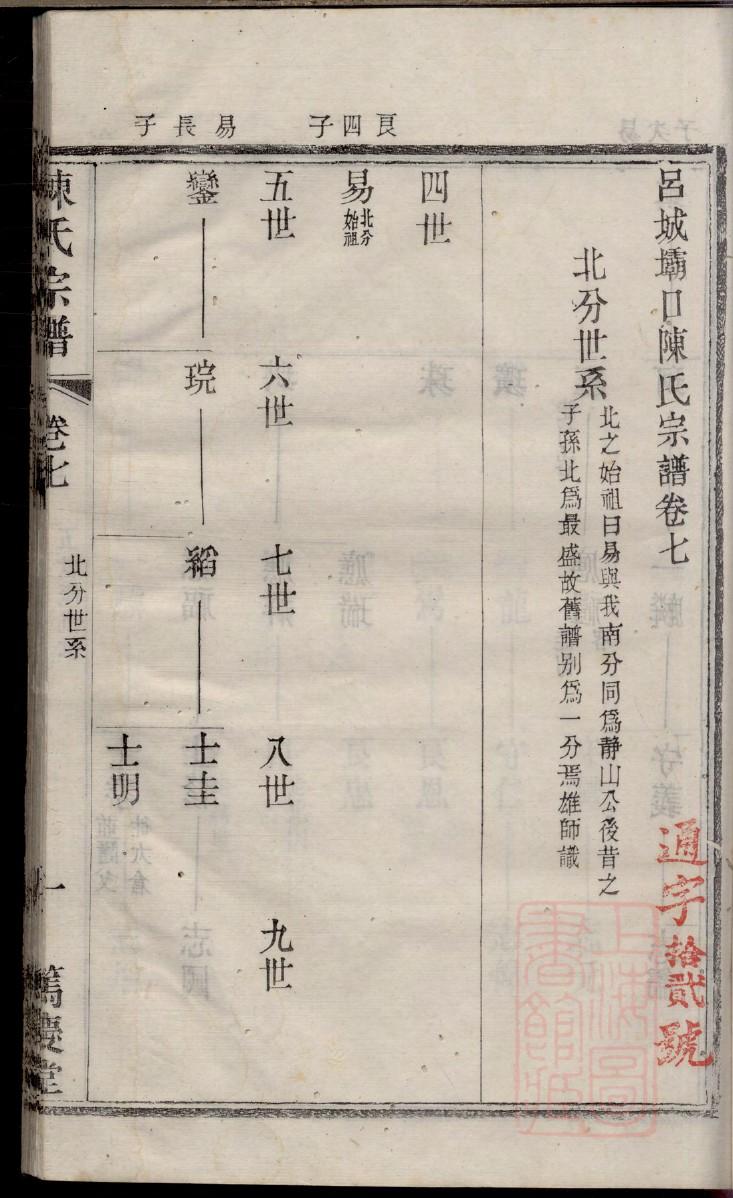 呂城壩口陳氏宗譜卷七
通字拾貳號
上海圖書館藏
北分世系
北之始祖曰易與我南分同爲靜山公後昔之
子孫北爲最盛故舊譜別爲一分焉雄師識
艮四子
四世
易北分始祖
五世 六世 七世 八世 九世
易長子
鑾 琓 縚 士圭
士明
陳氏宗譜 卷七 北分世系 一 篤慶堂